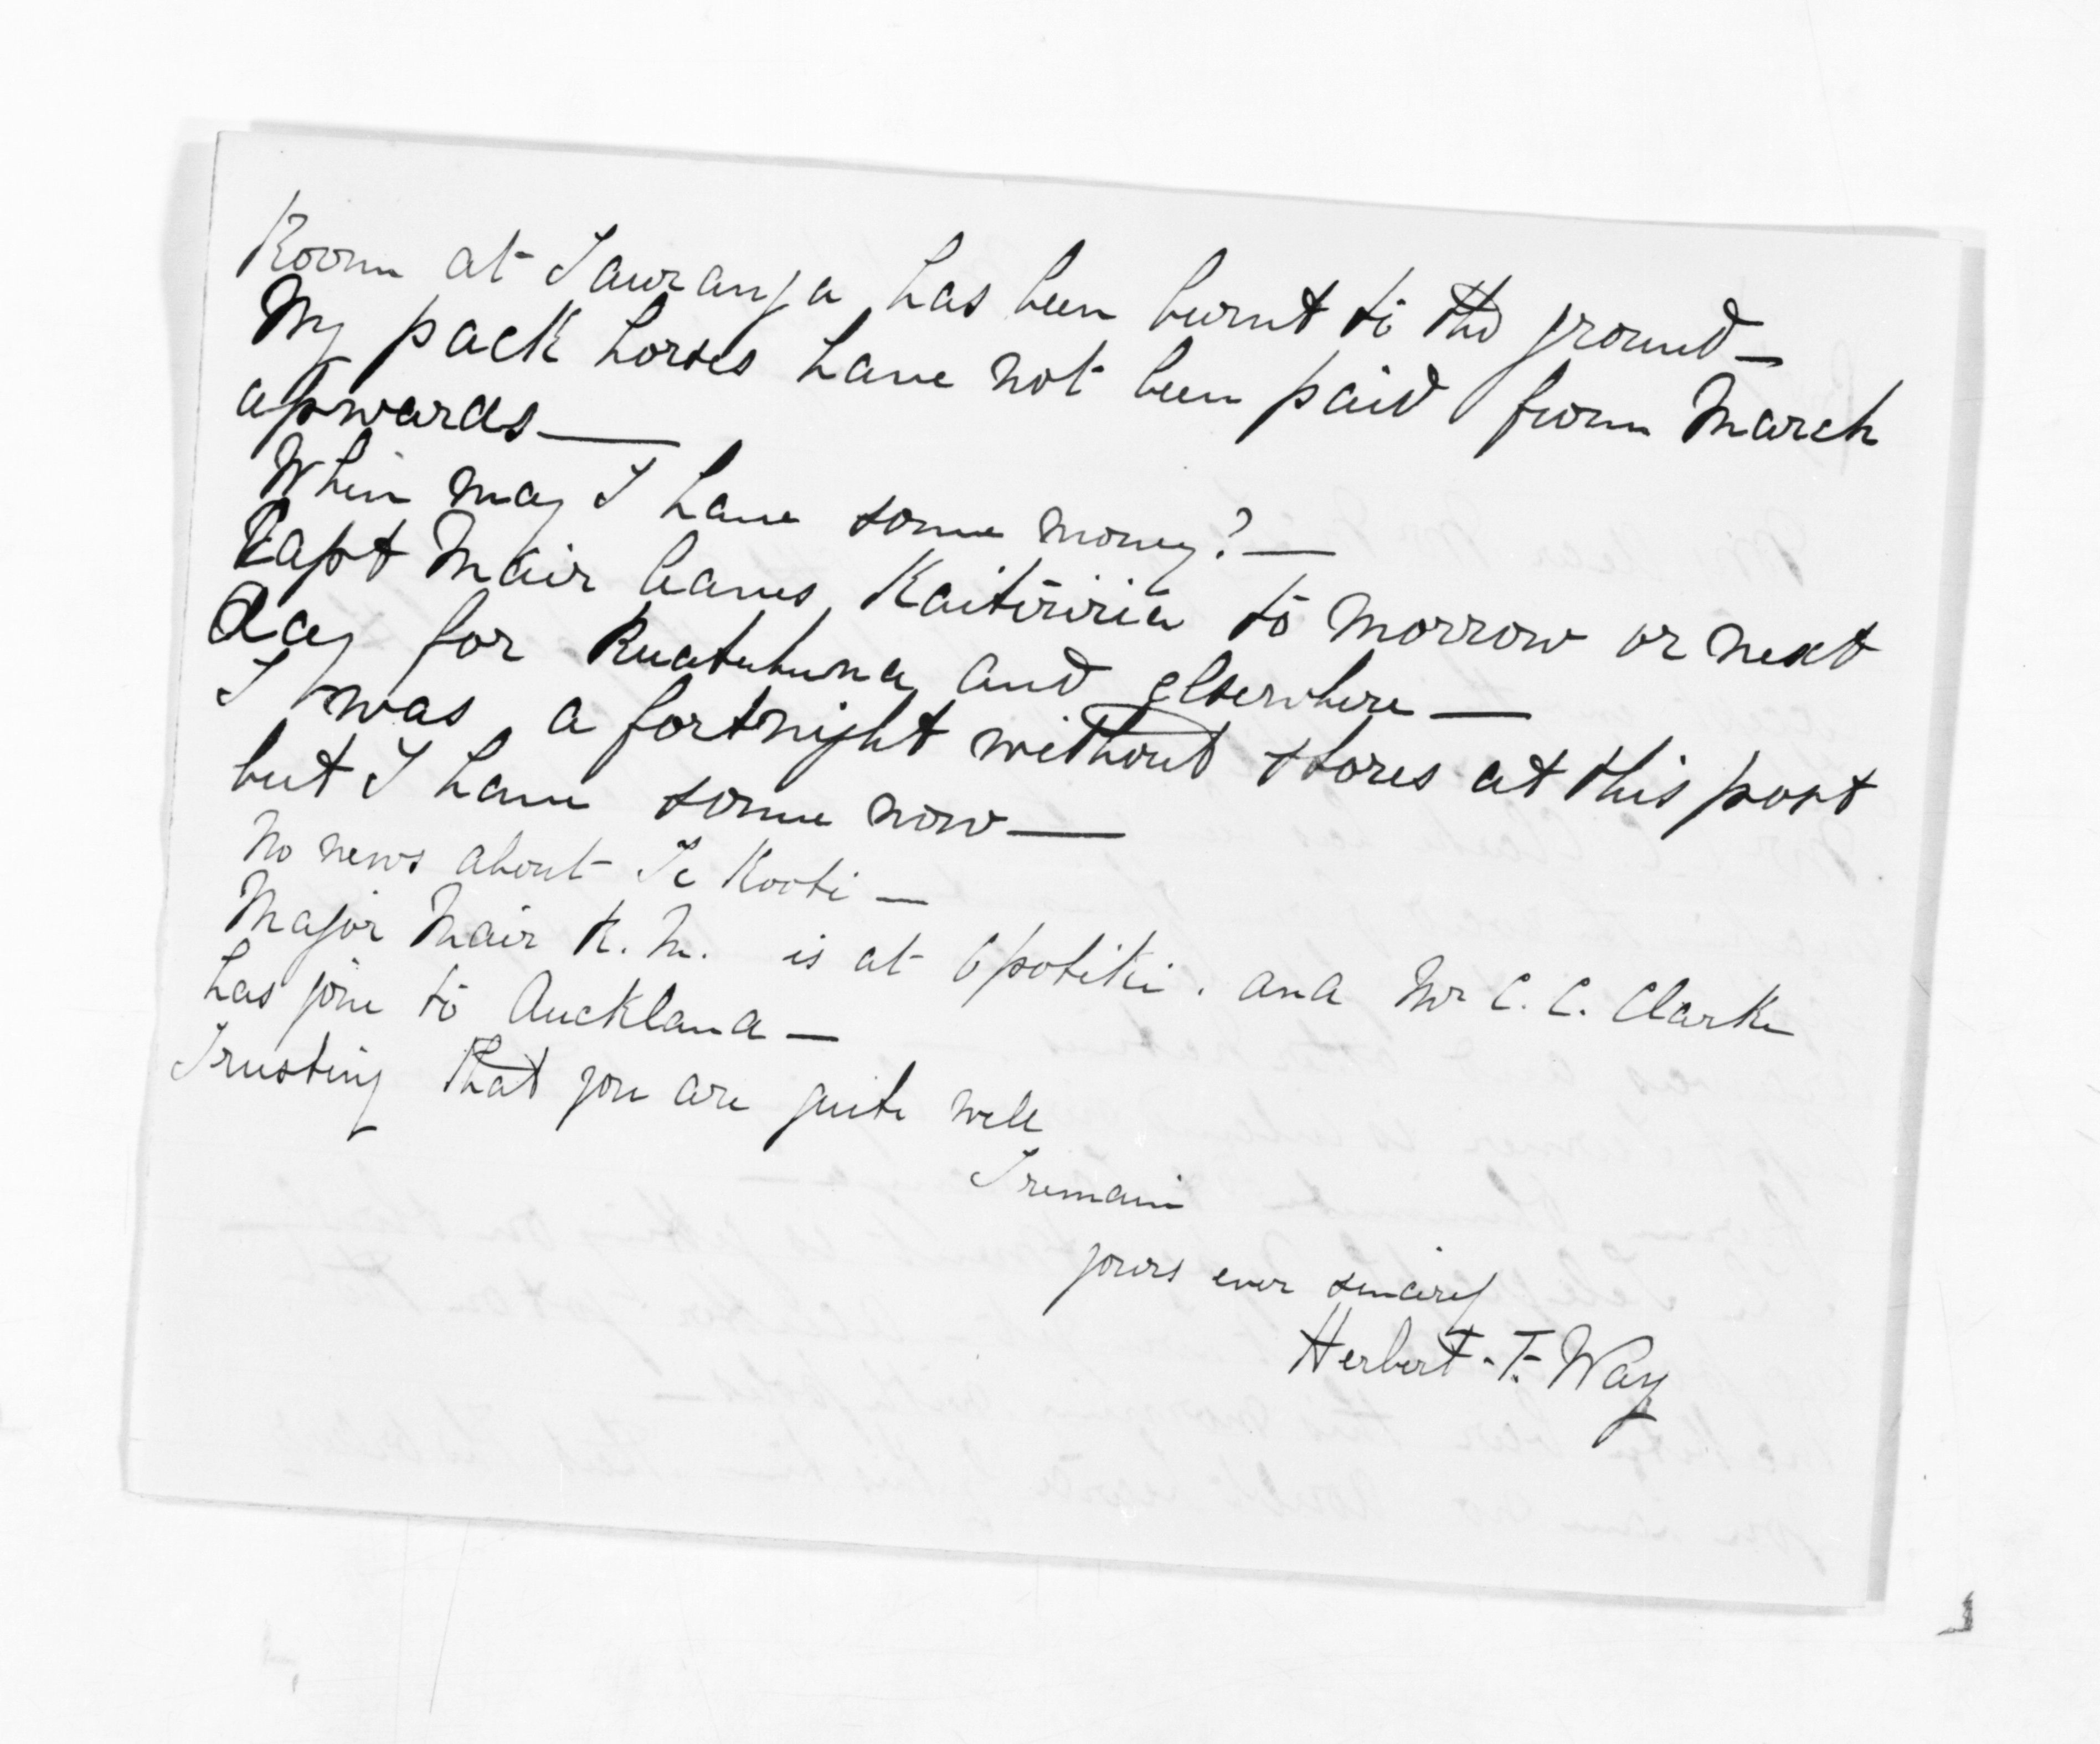 Room at Tauranga has been burnt to the ground—
My pack horses have not been paid from March
upwards—
When may I have some money?—
Capt Mair leaves Kaitiriria to morrow or next
day for Ruatahuna and elsewhere—
I was a fortnight without stores at this post
but I have some now—
No news about Te Kooti—
Major Mair R.M. is at Opotiki. and Mr C. C. Clarke
has gone to Auckland—
Trusting that you are quite well
I remain
yours ever sincerely
Herbert. F. Way